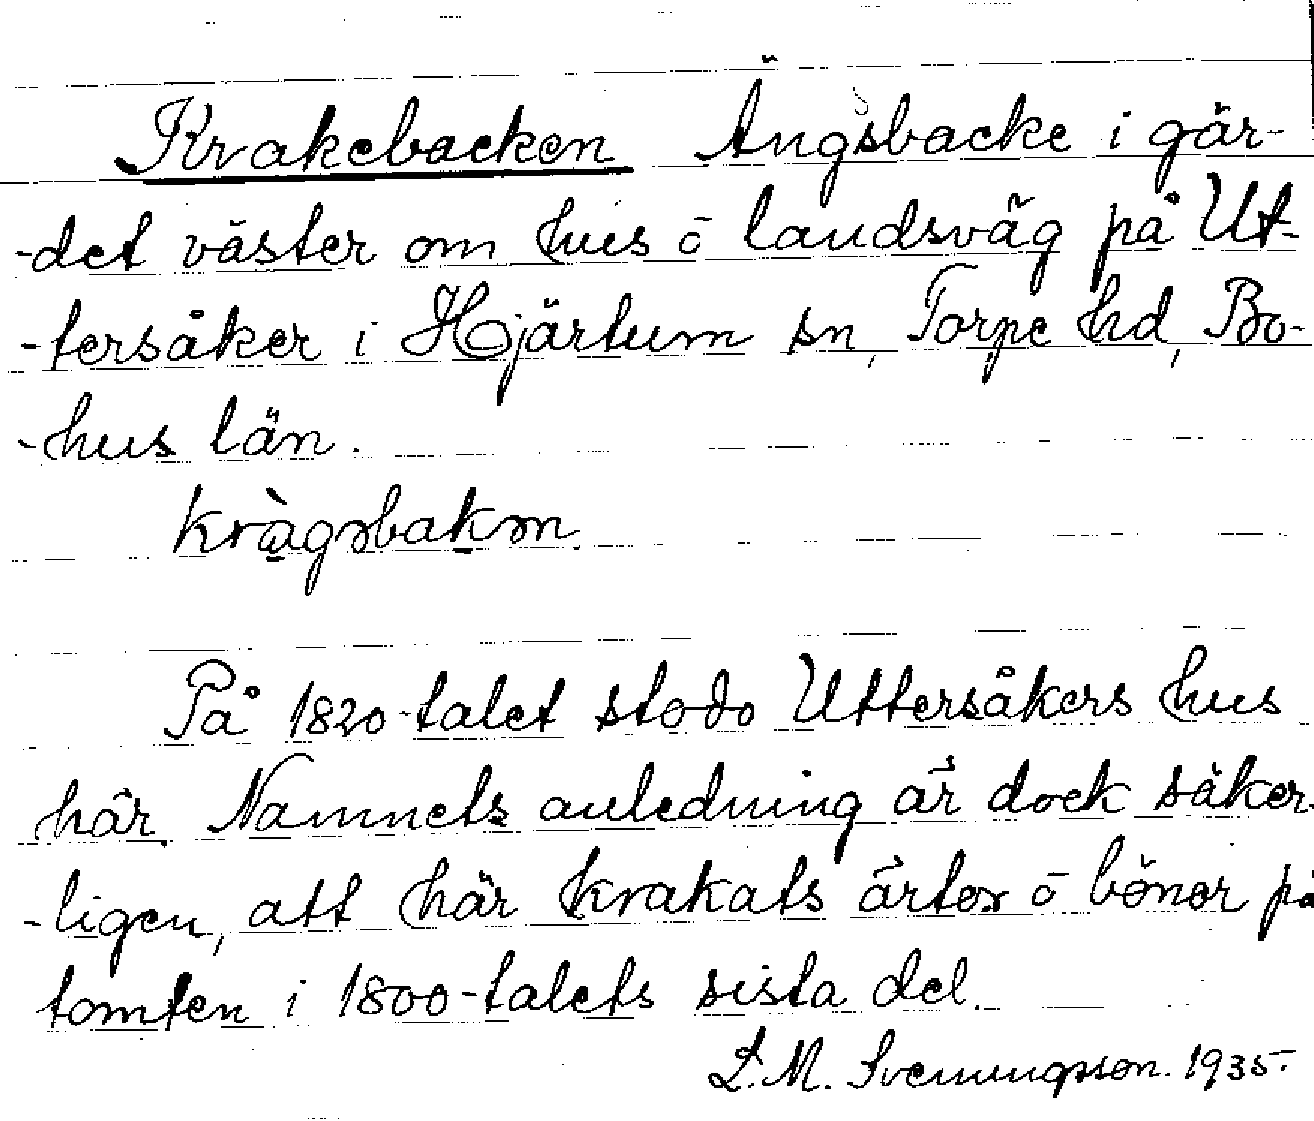 Krakebacken Ängsbacke i gär-
-det väster om hus ō landsväg på Ut-
-tersåker i Hjärtum sn, Torpe hd, Bo-
-hus län.
På 1820-talet stodo Uttersåkers hus
här. Namnets anledning är dock säker-
-ligen, att här krakats ärter ō bönor på
tomten i 1800-talets sista del.
L. M. Svenungsson. 1935.